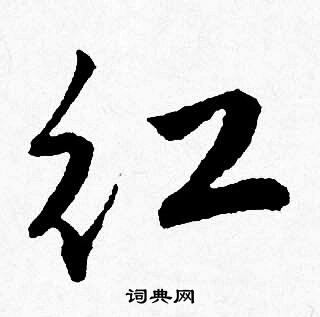 红
词典网